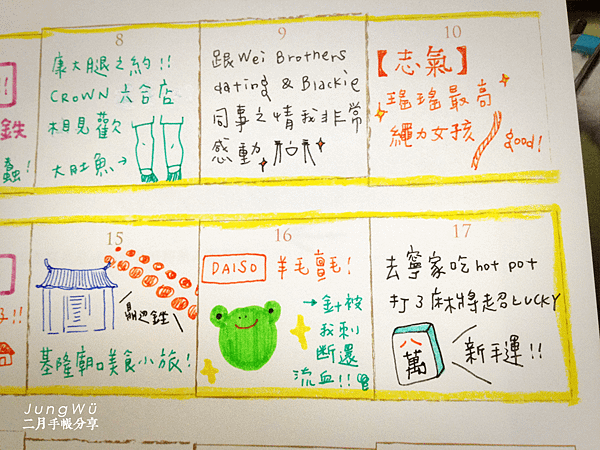 8
康大腿之約!!
CROWN 六合店
相見歡
大肚魚→
9
跟Wei Brothers
dating & Blackie
同事之情我非常
感動
10
【志氣】
瑤瑤最高
繩力女孩
good!
鉄
蠢!
15
鼎边銼
基隆廟口美食小旅!
16
DAISO 羊毛氈毛!
→針被
我刺
斷還
流血!!
17
去寧家吃hot pot
打3麻將超LUCKY
八萬
新手運!!
JungWü
二月手帳分享